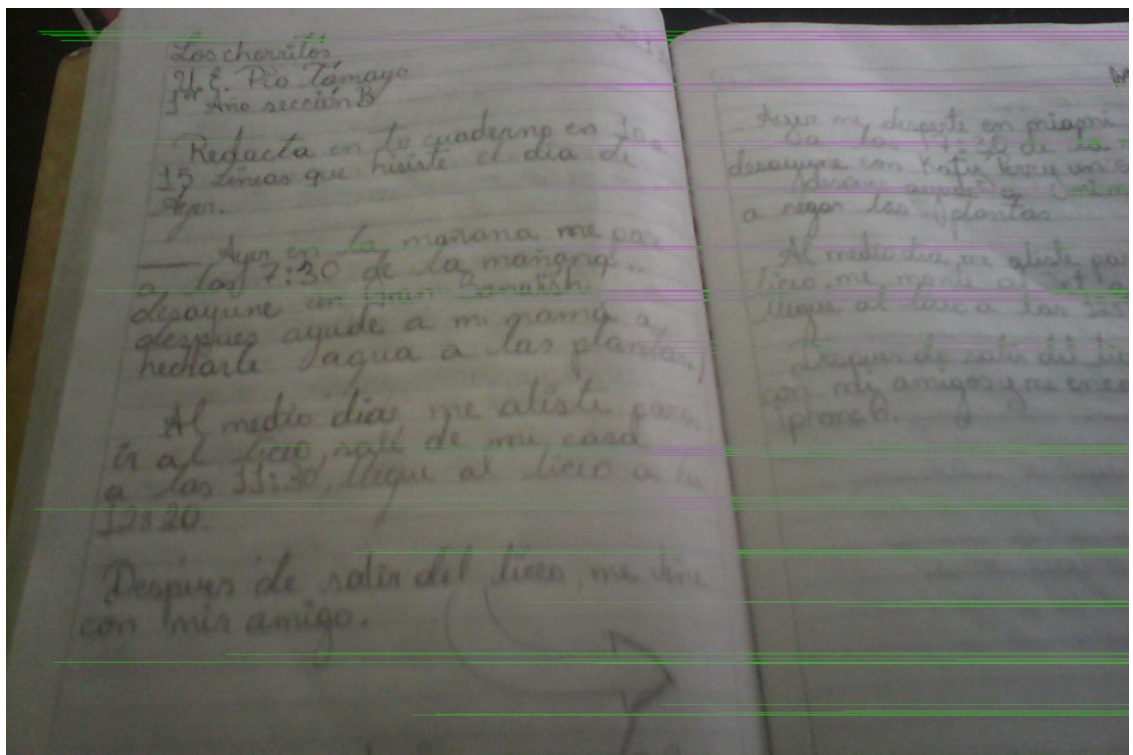 Los chorritos
U.E. Pío Támayo
1er Año sección B
Redacta en tu cuaderno en 10 a
15 Líneas que hisiste el día de
Ayer.
Ayer en la mañana me pare
a las 7:30 de la mañana,
desayune un gran Sanduish.
despues ayude a mi mamá a
hecharle agua a las plantas,
Al medio dia me aliste para
ir al liceo, salí de mi casa
a las 11:30, llegue al liceo a la
12:20.
Despues de salir del liceo, me vine
con mis amigo.
Ayer me desperte en miami
a las 7:30 de la
desayune con Katy Perry un
a regar las plantas
Al medio dia me aliste par
liceo, me monte al Jet
llegue al liceo a las
Despues de salir del lic
con mis amigos y me
iphone 6.